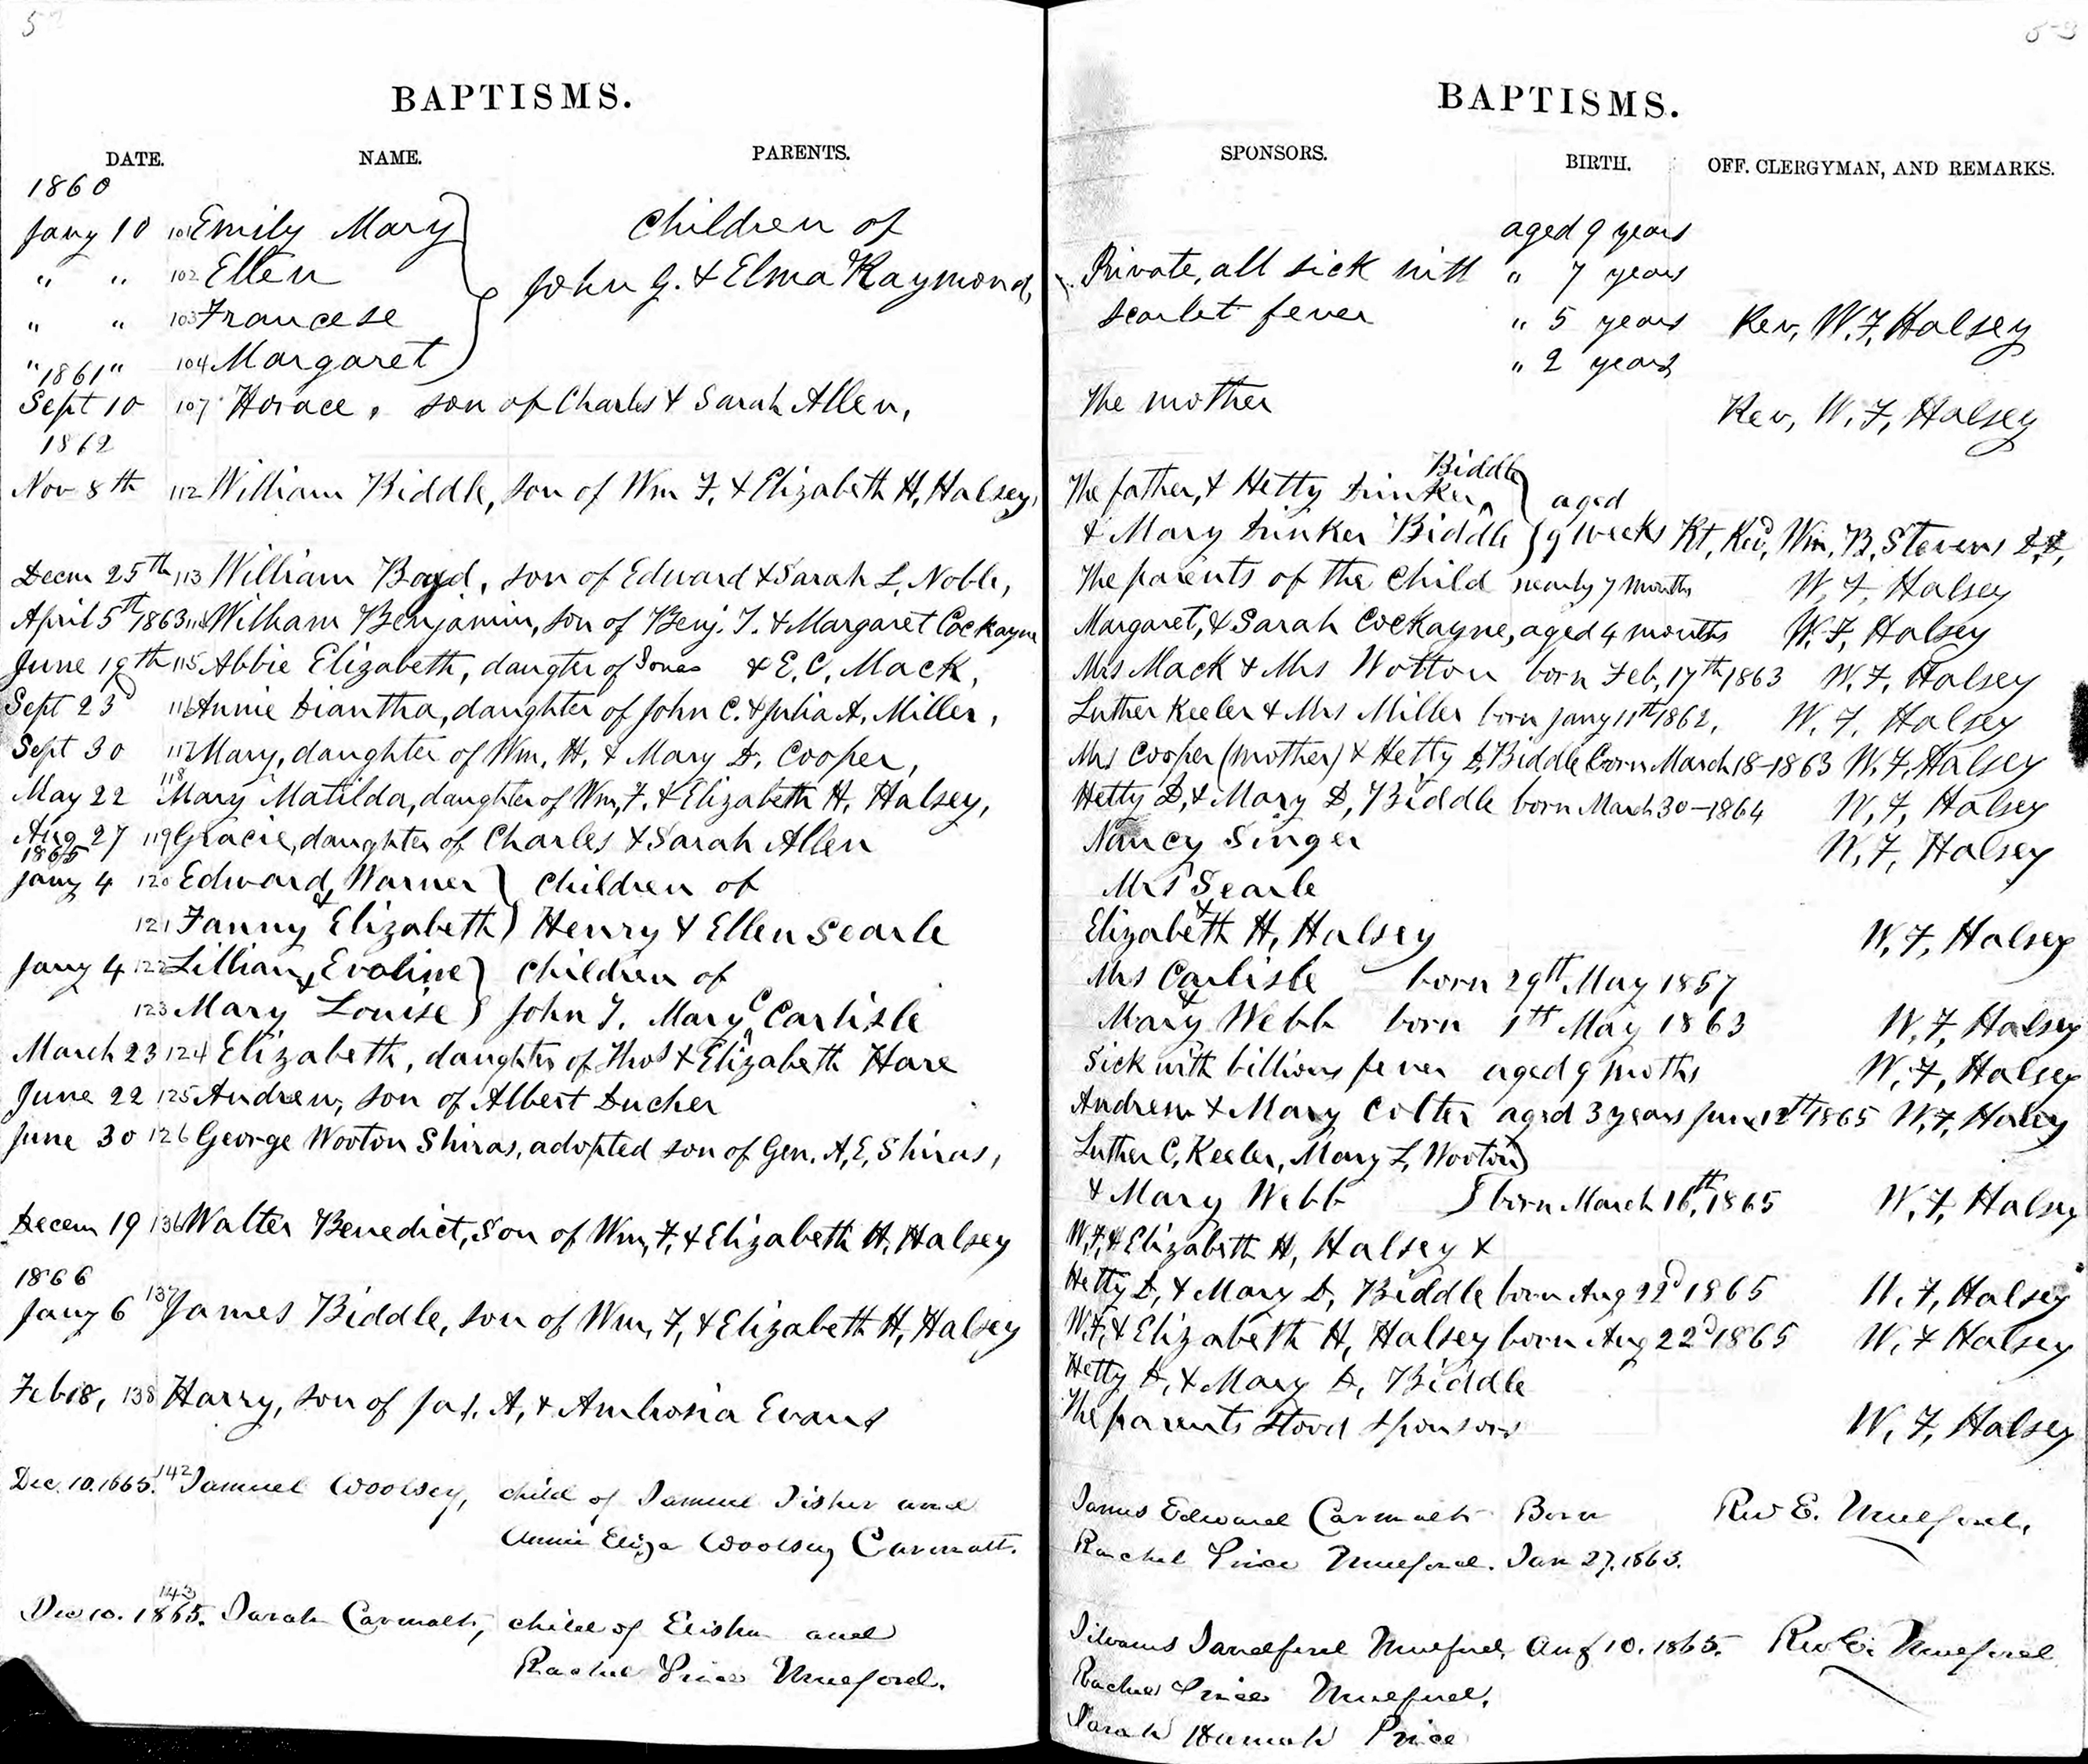 BAPTISMS.
DATE. NAME. PARENTS.
1860
Jany 10 101 Emily Mary } Children of
" " 102 Ellen
" " 103 Francese John G. & Elma Raymond,
" " 104 Margaret
1861
Sept 10 107 Horace, son of Charles & Sarah Allen,
1862
Nov 8th 112 William Biddle, son of Wm F. & Elizabeth H, Halsey,
Decm 25th 113 William Boyd, son of Edward & Sarah L, Noble,
April 5th 1863 William Benjamin, son of Benj. T. & Margaret Cockayne
June 19th 115 Abbie Elizabeth, daugter of Jones & E, C, Mack,
Sept 23d 116 Annie Diantha, daughter of John C. & Julia A, Miller,
Sept 30 117 Mary, daughter of Wm, H, & Mary D, Cooper,
May 22 118 Mary Matilda, daughter of Wm, F. & Elizabeth H, Halsey,
Aug 27 119 Gracie, daughter of Charles & Sarah Allen
1865
Jany 4 120 Edward Warner } Children of
&
121 Fanny Elizabeth } Henry & Ellen Searle
Jany 4 122 Lillian Evaline } Children of
&
123 Mary Louise } John T. Mary C Carlisle
March 23 124 Elizabeth, daughter of Thos & Elizabeth Hare
June 22 125 Andrew, son of Albert Ducher
June 30 126 George Wooton Shiras, adopted son of Gen. A, E, Shiras,
Decem 19 136 Walter Benedict, Son of Wm, F, & Elizabeth H, Halsey
1866
Jany 6 137 James Biddle, son of Wm, F, & Elizabeth H, Halsey
Feb 18, 138 Harry, son of Jas. A, & Ambrosia Evans
Dec. 10. 1865. 142 Samuel Woolsey, child of Samuel Fisher and
Annie Eliza Woolsey Carmalt.
143
Dec 10. 1865. Sarah Carmalt, child of Elisha and
Rachel Price Mulford.
53
BAPTISMS.
SPONSORS. BIRTH. OFF. CLERGYMAN, AND REMARKS.
aged 9 years
Private, all sick with " 7 years
scarlet fever " 5 years Rev, W. F, Halsey
" 2 years
The mother Rev, W. F, Halsey
Biddle
The father, & Hetty Drinker } aged
& Mary Drinker Biddle } 9 weeks Rt, Rev, Wm, B, Stevens D.D,
The parents of the Child nearly 7 months W, F, Halsey
Margaret, & Sarah Cockayne, aged 4 months W. F, Halsey
Mrs Mack & Mrs Wotton born Feb, 17th 1863 W. F, Halsey
Luther Keeler & Mrs Miller born Jany 11th 1862, W. F, Halsey
Mrs Cooper (Mother) & Hetty D, Biddle born March 18 - 1863 W. F, Halsey
Hetty D, & Mary D, Biddle born March 30 - 1864 W, F, Halsey
Nancy Singer W, F, Halsey
Mrs Searle
&
Elizabeth H, Halsey W, F, Halsey
Mrs Carlisle born 29th May 1857
&
Mary Webb born 1th May 1863 W, F, Halsey
Sick with billious fever aged 9 moths W, F, Halsey
Andrew & Mary Colter aged 3 years June 12th 1865 W, F, Halsey
Luther C, Keeler, Mary L, Wooton }
& Mary Webb } born March 16th, 1865 W, F, Halsey
W, F, & Elizabeth H, Halsey &
Hetty D, & Mary D, Biddle born Aug 22d 1865 W. F, Halsey
W, F, & Elizabeth H, Halsey born Aug 22d 1865 W, F Halsey
Hetty D, & Mary D, Biddle
The parents stood sponsors W, F, Halsey
James Edward Carmalt Born Rev E. Mulford,
Rachel Price Mulford. Jan 27. 1863.
Silvanus Sandford Mulford, Aug 10. 1865. Rev E. Mulford
Rachel Price Mulford,
Sarah Hannah Price